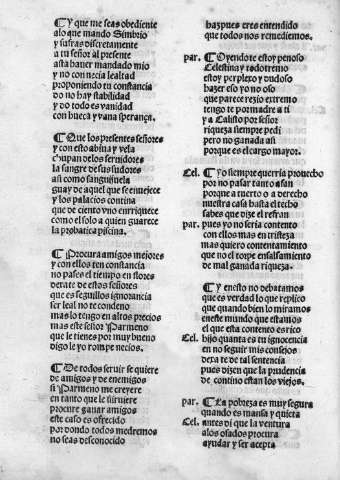 ¶ Y que me seas obediente
alo que mando Simbrio
y sufras discretamente
a tu señor al presente
asta hauer mandado mio
y no con necia lealtad
proponiendo tu constancia
do no hay stabilidad
y do todo es vanidad
con hueca y vana sperança.
¶ Que los presentes señores
y con esto abina y vela
chupan delos seruidores
la sangre de sus sudores
assi como sanguijuela
guay de aquel que se enuejece
y los palacios contina
que de ciento vno enrriquece
como el solo a quien guarece
la probatica piscina.
¶ Procura amigos mejores
y con ellos ten constancia
no pases el tiempo en flores
derate de estos señores
que es seguillos ignorancia
ser leal no te condeno
mas lo tengo en altos precios
mas este señor Parmeno
que le tienes por muy bueno
digo le yo rompe necios.
¶ De todos seruir se quiere
de amigos y de enemigos
si Parmeno me creyere
en tanto que le siruiere
procure ganar amigos
este caso es ofrecido
por donde todos medremos
no seas desconocido
haz pues eres entendido
que todos nos remediemos.
par. ¶ Oyendote estoy penoso
Celestina y todo tremo
estoy perplexo y dudoso
hazer eso yo no oso
que parece rezio extremo
tengo te por madre a ti
y a Calisto por señor
riqueza siempre pedi
pero no ganada asi
porque es el cargo mayor.
Cel. ¶ Yo siempre querria prouecho
por no pasar tanto afan
porque a tuerto o a derecho
nuestra casa hasta el techo
sabes que dize el refran
par. pues yo no seria contento
con ellos mas en tristeza
mas quiero contentamiento
que no el torpe ensalsamiento
de mal ganada riqueza.
¶ Y en esto no debatamos
que es verdad lo que replico
que quando bien lo miramos
en este mundo que estamos
el que esta contento es rico
Cel. hijo quanta es tu ignocencia
en no seguir mis consejos
dera te de tal sentencia
pues dizen que la prudencia
de contino estan los viejos.
par. ¶ La pobreza es muy segura
quando es mansa y quieta
Cel. antes di que la ventura
alos osados procura
ayudar y ser acepta